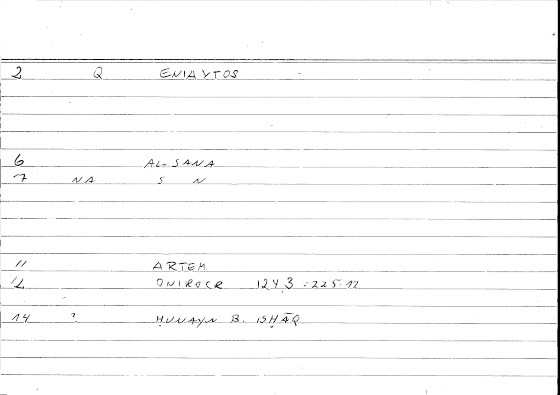 2 Q ENIAYTOS
6 AL-SANA
7 NA S N
11 ARTEM
12 ONIROCR 124,3 = 225.12
14 ? ḤUNAYN B. ISḤĀQ